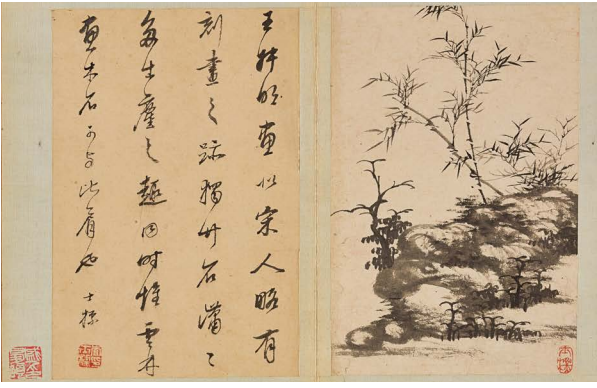 王叔明畫似宋人略有
刻畫之跡獨竹石瀟〻
多出塵之趣同時惟雲林
畫木石可与比肩也 士標